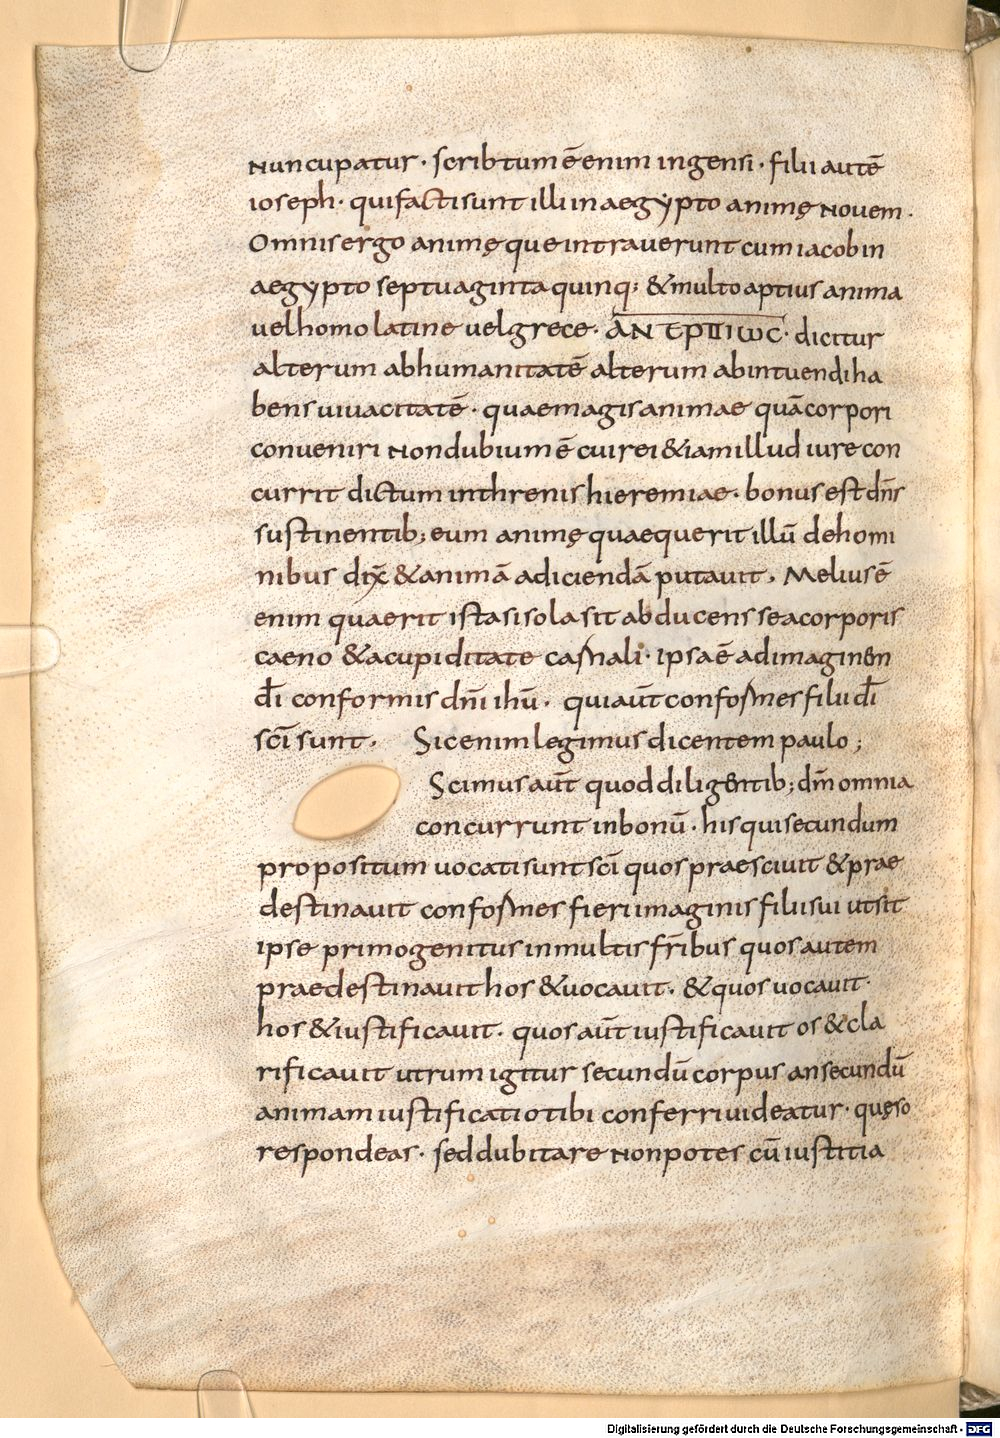 nuncupatur · scribtum ē enim in gensi · filii autē
ioseph · qui facti sunt illi in aegypto animę novem ·
Omnis ergo animę que intraverunt cum iacob in
aegypto septuaginta quinq; & multo aptius anima
vel homo latine vel grece · ΑΝΤΡΠΙΩC · dicitur
alterum ab humanitatē alterum ab intuendi ha
bens vivacitatē · quae magis animae quā corpori
conveniri non dubium ē cui rei & iam illud iure con
currit dictum in threnis hieremiae · bonus est dn̄s
sustinentib; eum animę quae querit illū de homi
nibus dix̄ & animā adiciendā putavit. Melius ē
enim quaerit ista si sola sit abducens se a corporis
caeno & a cupiditate carnali · ipsa ē ad imaginen
dī conformis dn̄i ihū · qui aūt conformes filii dī
sc̄i sunt. Sic enim legimus dicentem paulo;
Scimus aūt quod diligentib; dm̄ omnia
concurrunt in bonū · his qui secundum
propositum vocati sunt sc̄i quos praescivit & prae
destinavit conformes fieri imaginis filii sui ut sit
ipse primogenitus in multis fr̄ibus quos autem
praedestinavit hos & vocavit. & quos vocavit ·
hos & iustificavit · quos aūt iustificavit os & cla
rificavit utrum igitur secundū corpus an secundū
animam iustificatio tibi conferri videatur · quęso
respondeas · sed dubitare non potes cū iustitia
Digitalisierung gefördert durch die Deutsche Forschungsgemeinschaft - DFG